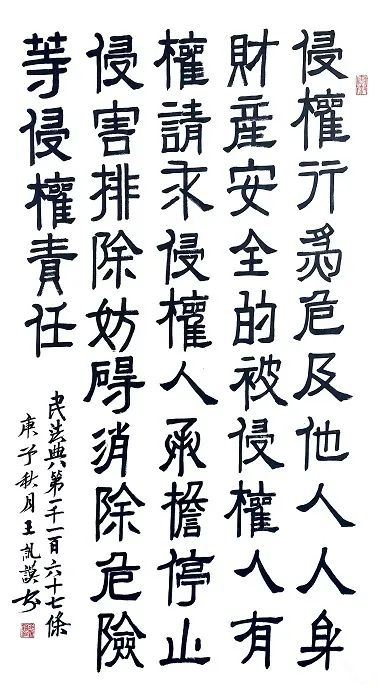 侵權行爲危及他人人身
財產安全的被侵權人有
權請求侵權人承擔停止
侵害排除妨碍消除危險
等侵權責任
民法典第一千一百六十七條
庚子秋月王